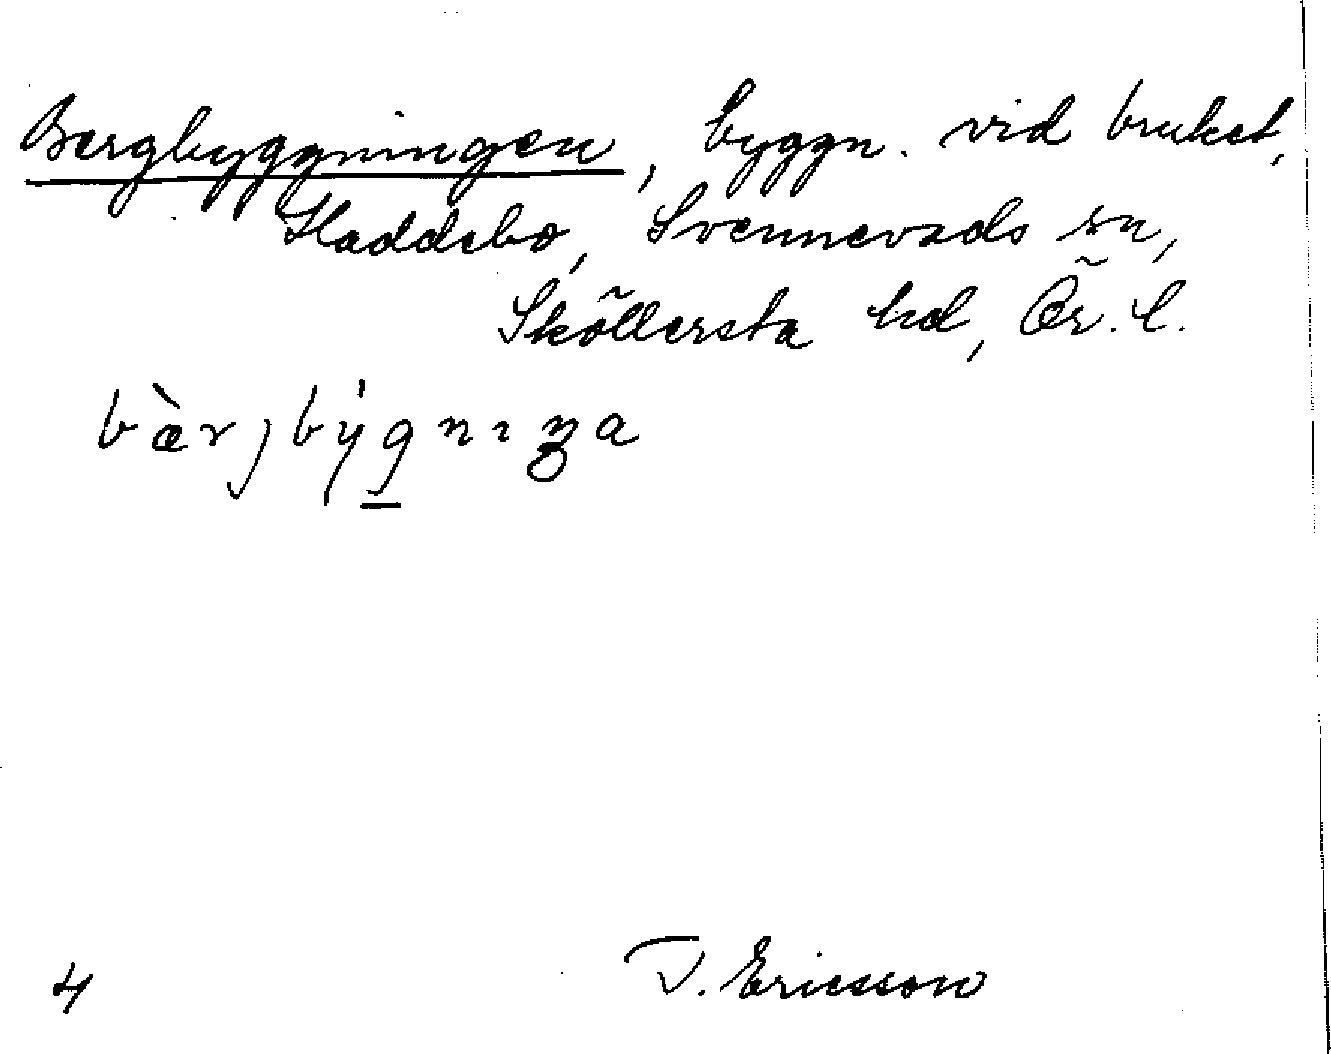 Bergbyggningen, byggn. vid bruket,
Haddebo, Svennevads sn,
Sköllersta hd, Ör. l.
bæ̀rjby̍gnıŋa
4
T. Ericsson